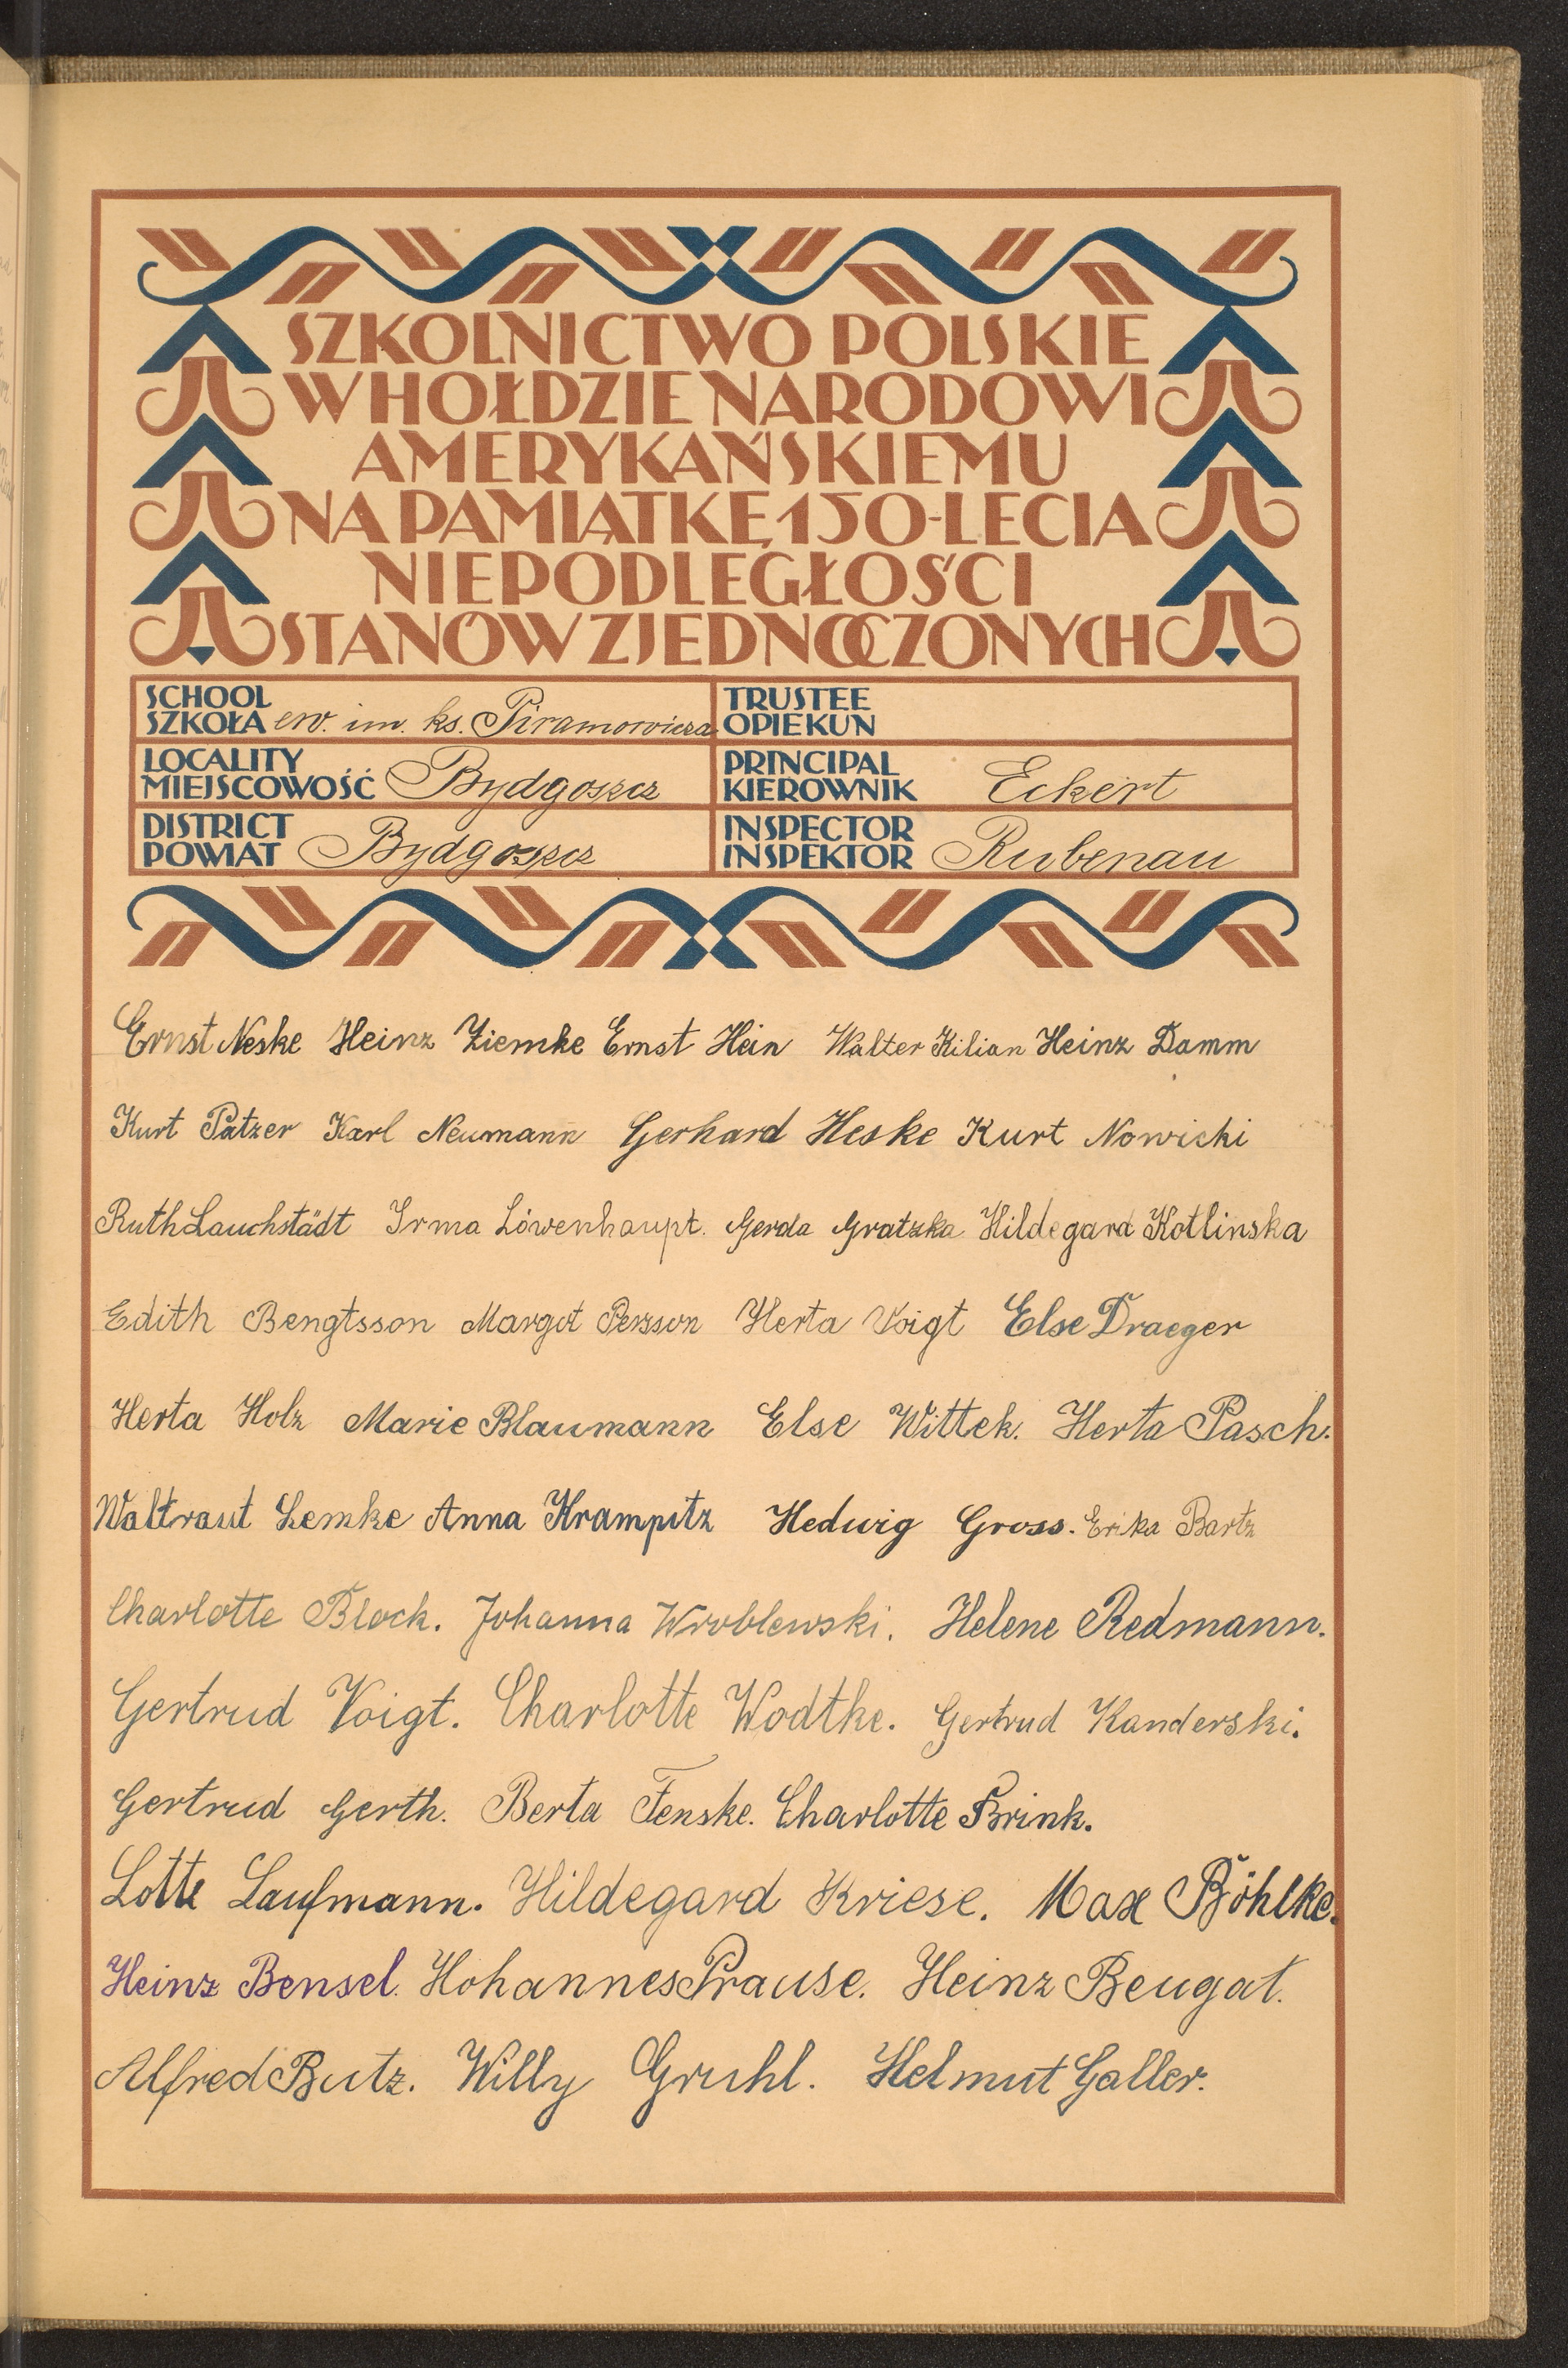 SZKOLNICTWO POLSKIE
W HOŁDZIE NARODOWI
AMERYKAŃSKIEMU
NA PAMIĄTKĘ 150-LECIA
NIEPODLEGŁOŚCI
STANÓW ZJEDNOCZONYCH
SCHOOL
SZKOŁA ew. im. ks. Piramowicza
TRUSTEE
OPIEKUN
LOCALITY
MIEJSCOWOŚĆ Bydgoszcz
PRINCIPAL
KIEROWNIK Eckert
DISTRICT
POWIAT Bydgoszcz
INSPECTOR
INSPEKTOR Rubenau
Ernst Neske Heinz Ziemke Ernst Hein Walter Kilian Heinz Damm
Kurt Patzer Karl Neumann Gerhard Heske Kurt Nowicki
Ruth Lauchstädt Irma Löwenhaupt. Gerda Gratzka Hildegard Kotlinska
Edith Bengtsson Margot Persson Herta Voigt Else Draeger
Herta Holz Marie Blaumann Else Wittek. Herta Pasch.
Waltraut Lemke Anna Krampitz Hedwig Gross. Erika Bartz
Charlotte Block. Johanna Wroblewski. Helene Redmann.
Gertrud Voigt. Charlotte Wodtke. Gertrud Kanderski.
Gertrud Gerth. Berta Fenske. Charlotte Brink.
Lotte Laufmann. Hildegard Kriese. Max Böhlke.
Heinz Bensel. Hohannes Prause. Heinz Beugat.
Alfred Butz. Willy Gruhl. Helmut Galler.